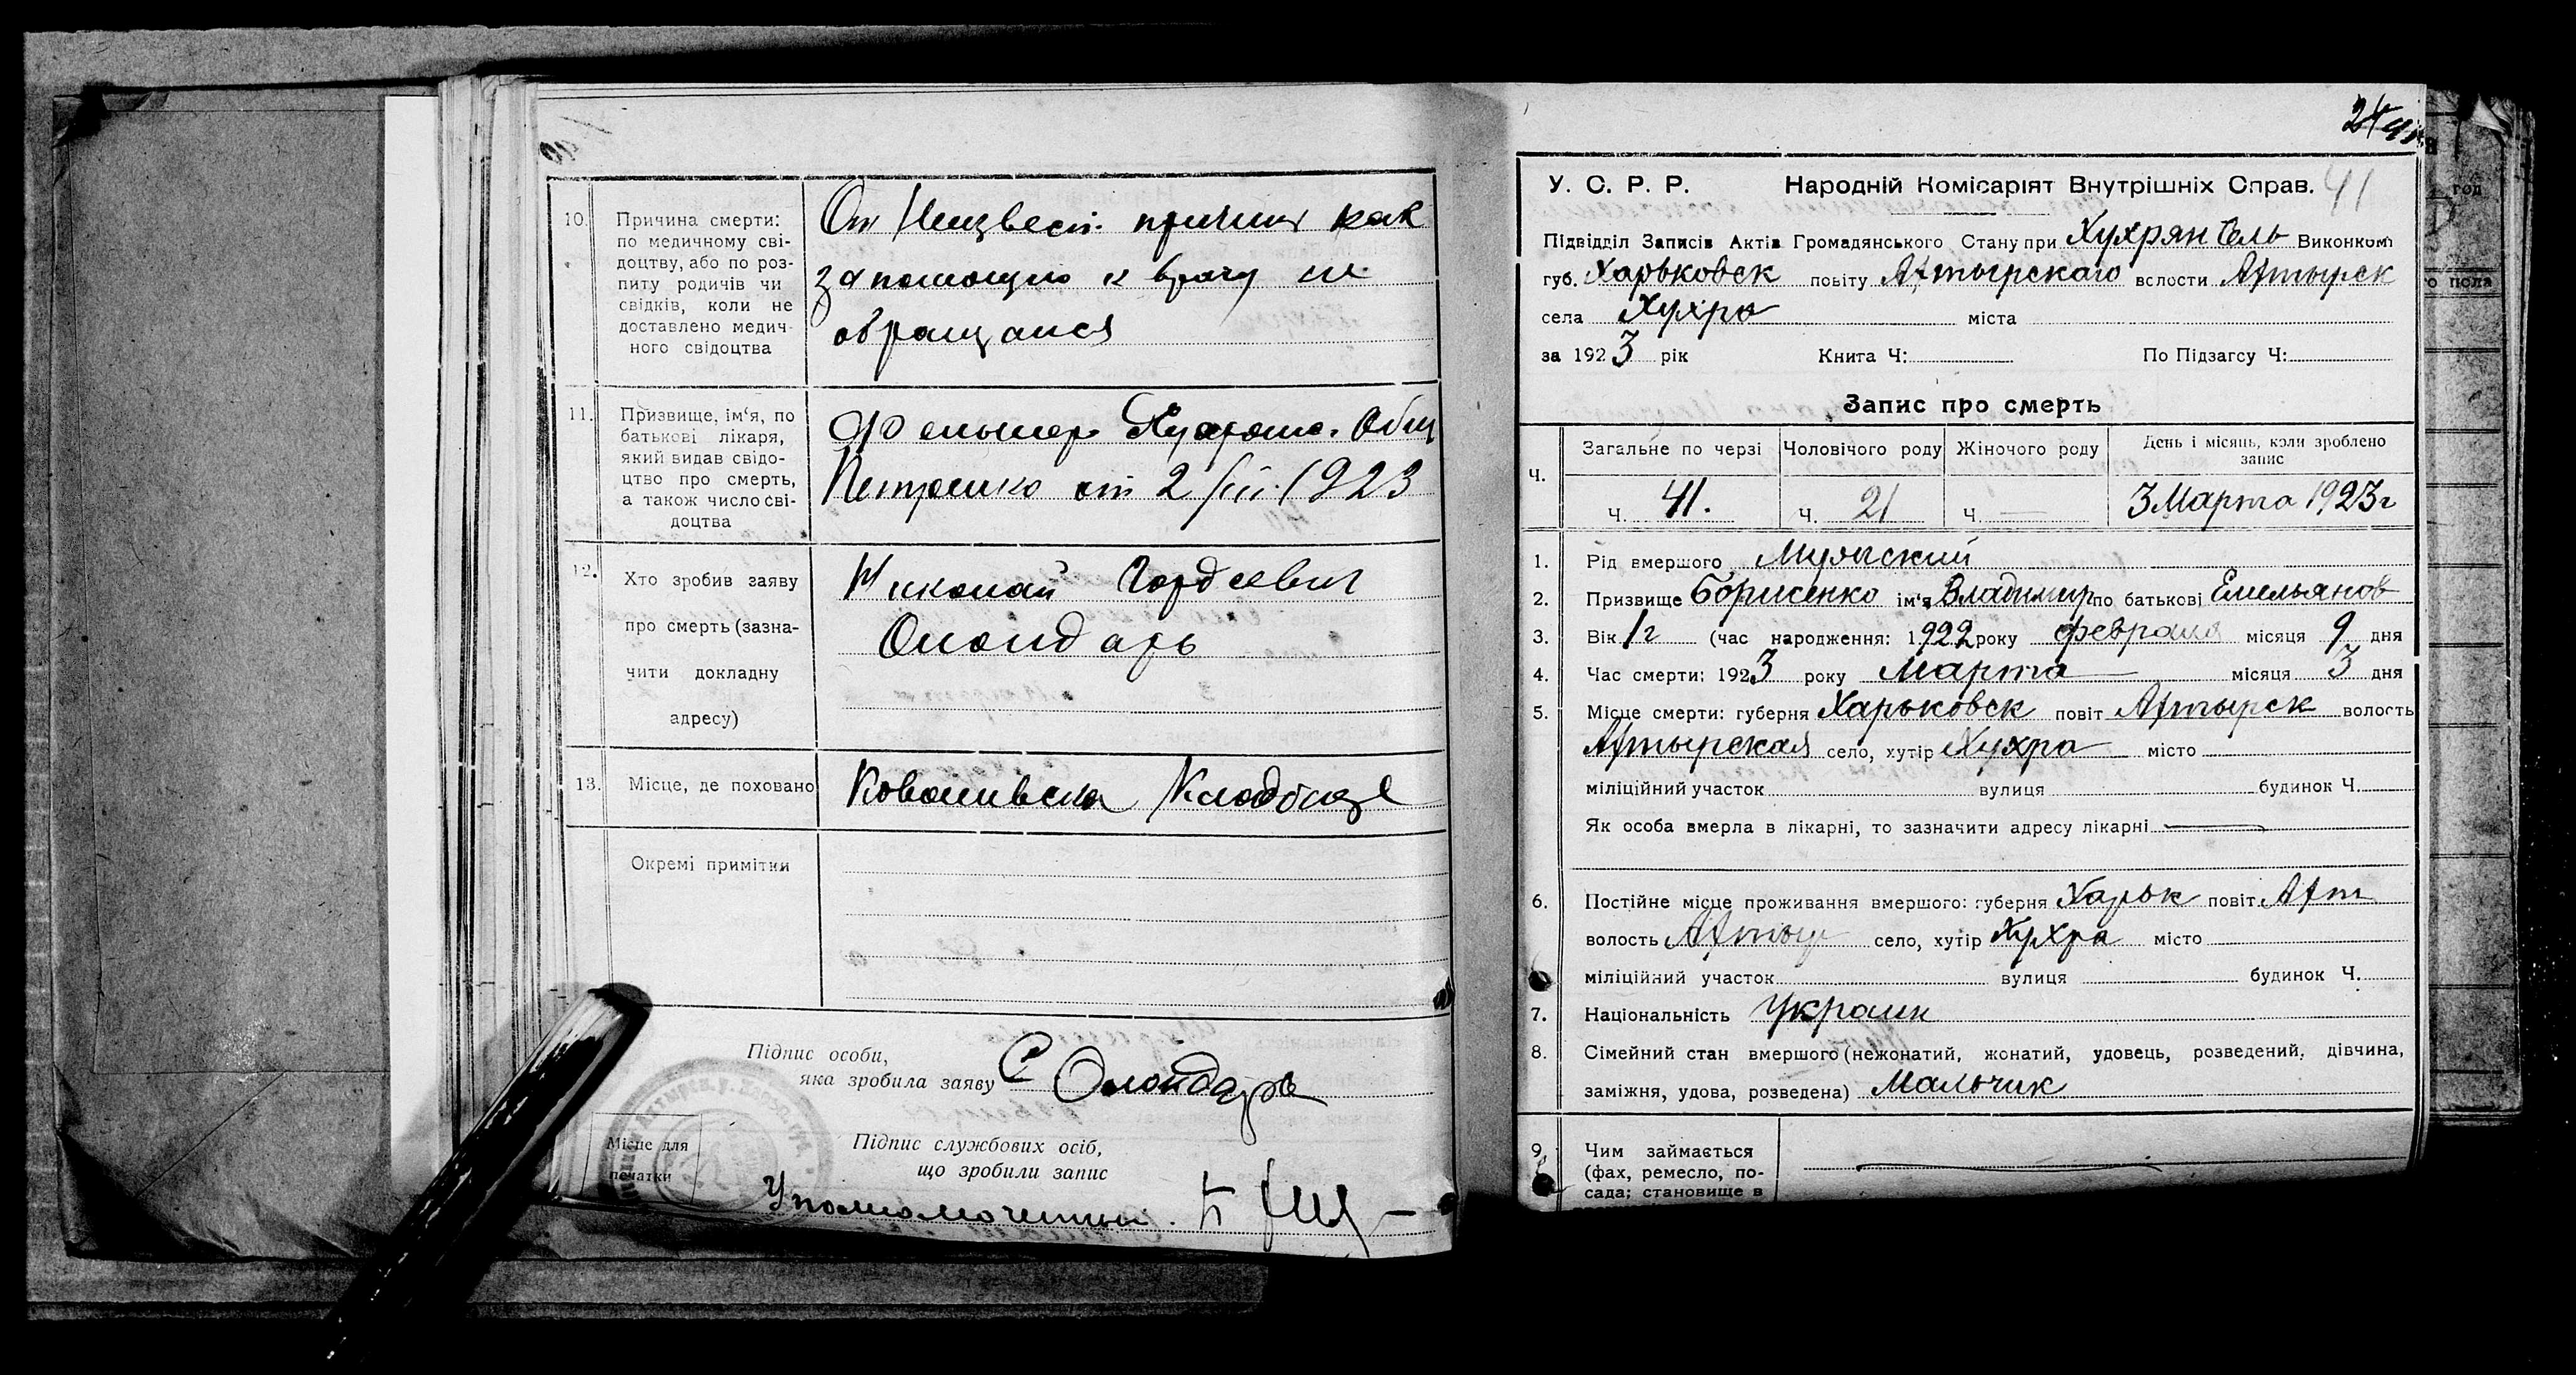 10. Причина смерти:
по медичному сві-
доцтву, або по роз-
питу родичів чи
свідків, коли не
доставлено медич-
ного свідоцтва
От Неизвест. причин как
за помощию к врачу не
обращался
11. Призвище, ім'я, по
батькові лікаря,
який видав свідо-
цтво про смерть,
а також число сві-
доцтва
Фельшер Общ
Петренко от 2/III. 1923
12. Хто зробив заяву
про смерть (зазна-
чити докладну
адресу)
Николай Гордеевич
Олондарь
13. Місце, де поховано
Кладбище
Окремі примітки
Підпис особи,
яка зробила заяву
Олондарь
Місце для
печатки
Підпис службових осіб,
що зробили запис
Уполномоченный
24
У. С. Р. Р. Народній Комісаріят Внутрішніх Справ. 41
Підвідділ Записів Актів Громадянського Стану при Хухрян Сель Виконком
губ. Харьковск повіту Ахтырскаго вслости Ахтырск
села Хухра міста
за 1923 рік Книга Ч: По Підзагсу Ч:
Запис про смерть
Ч. Загальне по черзі Чоловічого роду Жіночого роду День і місяць, коли зроблено
запис
Ч. 41. Ч. 21 Ч. — 3 Марта 1923г
1. Рід вмершого Мужский
2. Призвище Борисенко ім'я Владимир по батькові Емельянов
3. Вік 1 г (час народження: 1922 року февраля місяця 9 дня
4. Час смерти: 1923 року Марта місяця 3 дня
5. Місце смерти: губерня Харьковск повіт Ахтырск волость
Ахтырская село, хутір Хухра місто
міліційний участок вулиця будинок Ч.
Як особа вмерла в лікарні, то зазначити адресу лікарні —
6. Постійне місце проживання вмершого: губерня Харьк повіт Ахт
волость Ахтыр село, хутір Хухра місто
міліційний участок вулиця будинок Ч.
7. Національність Украин
8. Сімейний стан вмершого (нежонатий, жонатий, удовець, розведений, дівчина,
заміжня, удова, розведена) Мальчик
9. Чим займається
(фах, ремесло, по-
сада; становище в
год
о пола